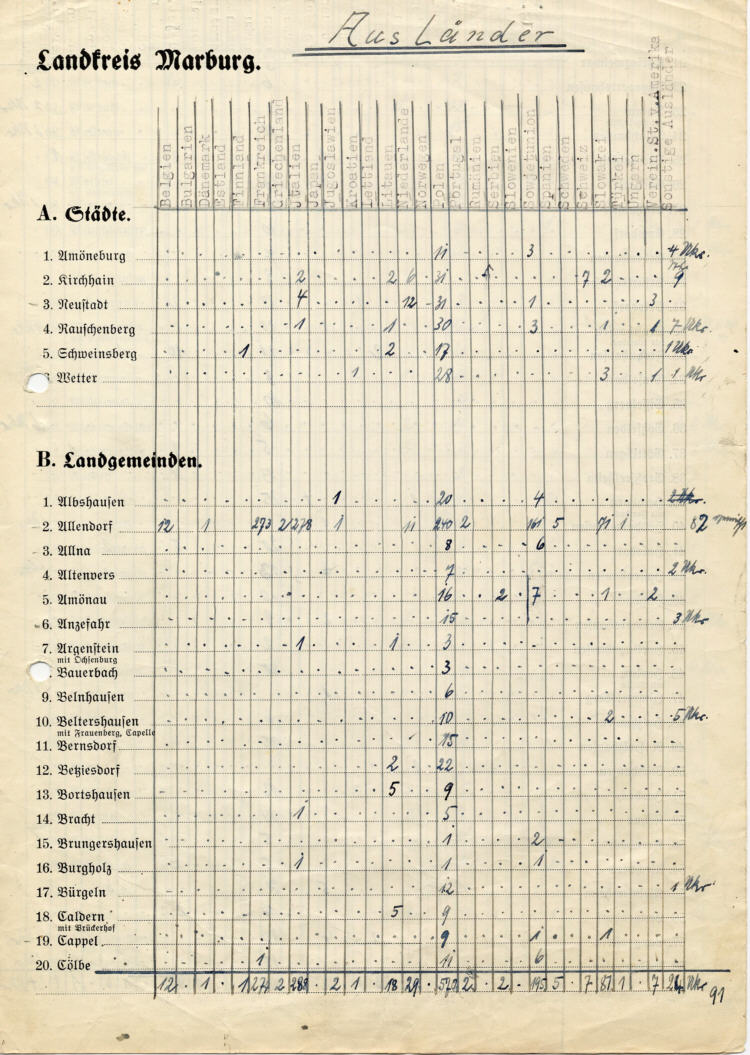 Ausländer
Landkreis Marburg.
Belgien Bulgarien Dänemark Estland Finnland Frankreich Griechenland Italien Japan Jugoslawien Kroatien Lettland Litauen Niederlande Norwegen Polen Portugal Rumänien Serbien Slowenien Sowjetunion Spanien Schweden Schweiz Slowakei Türkei Ungarn Verein.St.v.Amerika Sonstige Ausländer
A. Städte.
1. Amöneburg 11 3 4 Ukr.
2. Kirchhain 2 2 6 31 5 7 2 9
3. Neustadt 4 12 31 1 3
4. Rauschenberg 1 1 30 3 1 1 7 Ukr.
5. Schweinsberg 1 2 17 1 Ukr.
Wetter 1 28 3 1 1 Ukr
B. Landgemeinden.
1. Albshausen 1 20 4
2. Allendorf 12 1 273 2 278 1 11 240 2 161 5 71 1 82
3. Allna 8 6
4. Altenvers 7 2 Ukr.
5. Amönau 16 2 7 1 2
6. Anzefahr 15 3 Ukr
7. Argenstein 1 1 3
mit Ochsenburg
Bauerbach 3
9. Belnhausen 6
10. Beltershausen 10 2 5 Ukr.
mit Frauenberg, Capelle
11. Bernsdorf 15
12. Betziesdorf 2 22
13. Bortshausen 5 9
14. Bracht 1 5
15. Brungershausen 1 2
16. Burgholz 1 1 1
17. Bürgeln 12 1 Ukr
18. Caldern 5 9
mit Brückerhof
19. Cappel 9 1 1
20. Cölbe 1 11 6
12 1 1 274 2 288 2 1 18 29 2 2 195 5 7 87 1 7 Ukr
91